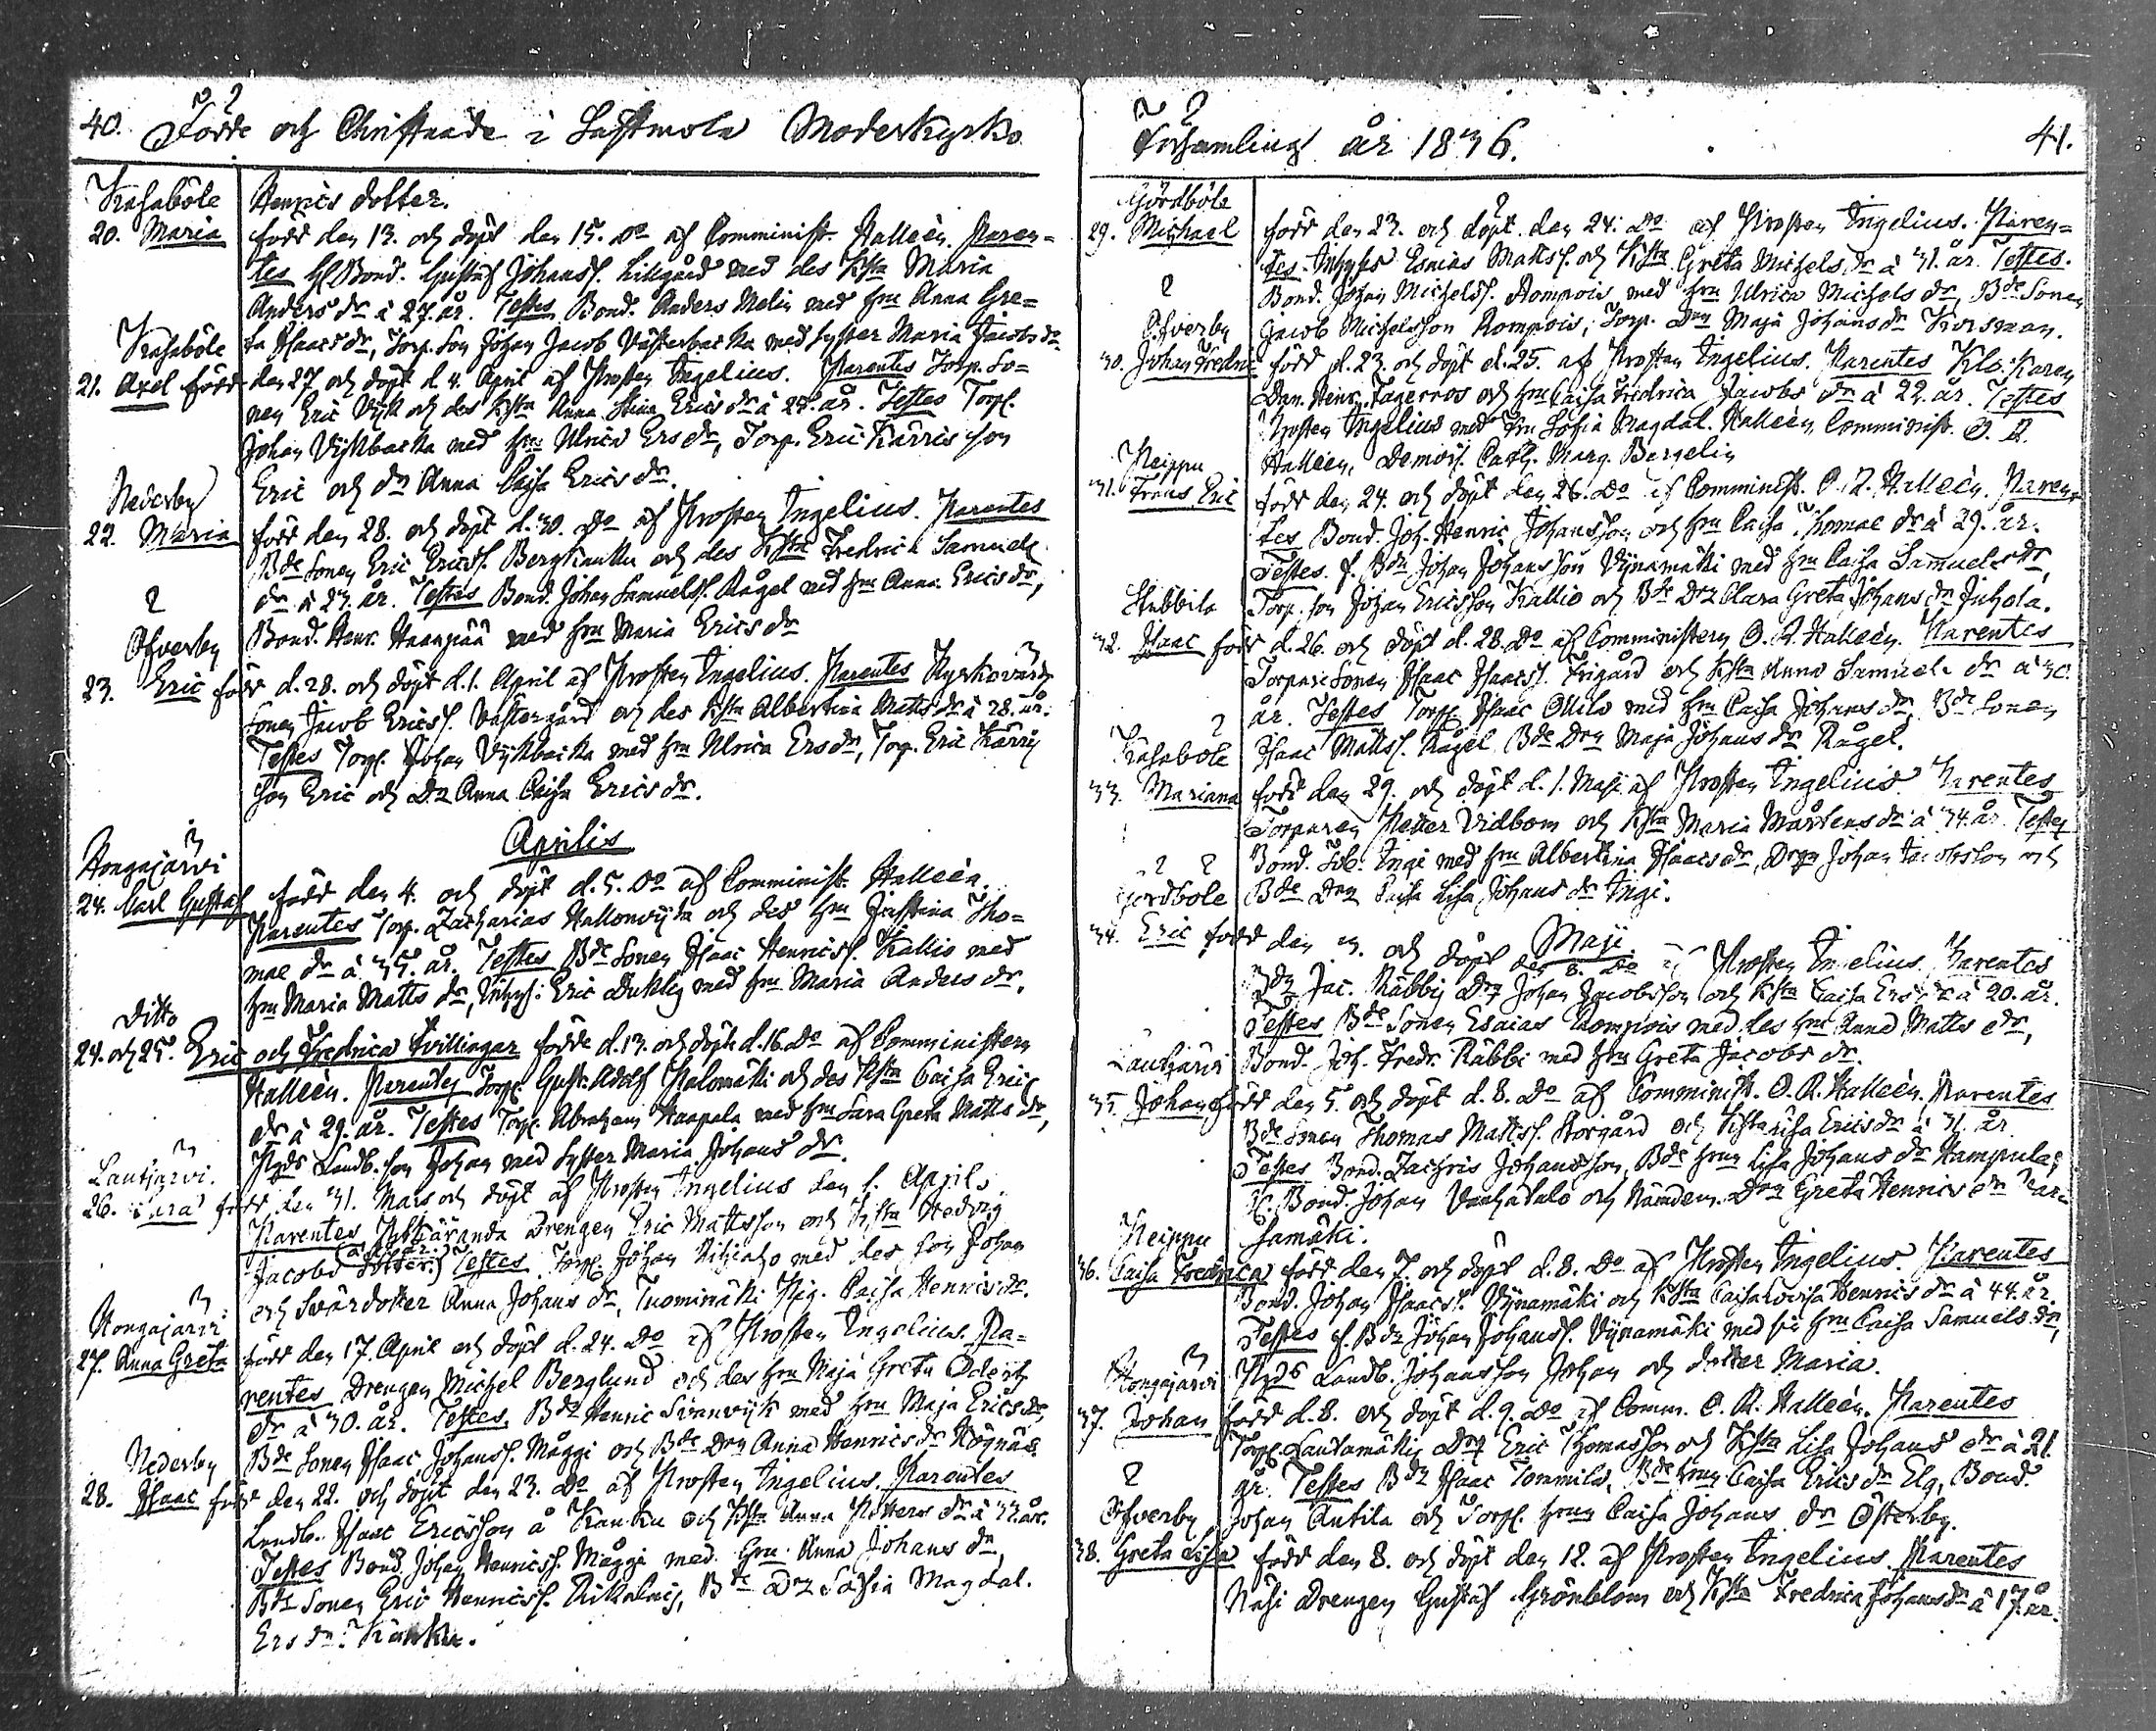 40. Födde och Christnade i Lastmola Moderkyrko
Krasaböle Henrics dotter.
20. Maria född den 13. och döpt den 15. Do af Comminist. Halleén. Paren=
tes Bond. Gustaf Johanss. Lillgård med des Hsta Maria
Anders dr à 27. år. Testes Bond. Anders Melin med hru Anna Gre=
Krasaböle ta Isaacs dr, Torp. Son Johan Jacob Västerbacka med Syster Maria Jacobs dr.
21. Axel född den 27 och döpt d. 4. April af Prosten Ingelius. Parentes Torp. So=
nen Eric Vyk och des Hsta Anna Stina Erics dr à 25. år. Testes Torp.
Johan Vykbacka med hru Ulrica Ers dr, Torp. Eric Karris son
Eric och dr Anna Caisa Erics dr.
Nederby
22. Maria född den 28. och döpt d. 30. Do af Prosten Ingelius. Parentes
Bde Sonen Eric Ericss. Bergkanku och des Hsta Fredrica Samuels
dr à 27. år. Testes Bond. Johan Samuelss. Rågel med hru Anna Erics dr,
Bond. Henr. Haanpää med hru Maria Erics dr
Öfverby
23. Eric född d. 28. och döpt d. 1. April af Prosten Ingelius. Parentes Kyrkovärds
Sonen Jacob Ericss. Västergård och des Hsta Albertina Matts dr à 28. år.
Testes Torp. Johan Vykbacka med hru Ulrica Ers dr, Torp. Eric Karris
son Eric och Dr Anna Caisa Erics dr.
Aprilis
Hongajärvi
24. Carl Gustaf född den 4. och döpt d. 5. Do af Comminist. Halleén.
Parentes Torp. Zacharias Hallonvyka och des hru Justina Tho=
mae dr à 35. år. Testes Bde Sonen Isaac Henricss. Kallio med
hru Maria Matts dr, Eric med hru Maria Anders dr.
Ditto
24. och 25. Eric och Fredrica Tvillingar födde d. 13. och döpte d. 16. Do af Comministern
Halleén. Parentes Torp. Gust. Adolf Palomäki och des Hsta Caisa Erics
dr à 29. år. Testes Torp. Abraham Haapala med hru Sara Greta Matts dr,
Landb. son Johan med Syster Maria Johans dr.
Lautjärvi.
26. Sara född den 31. Mars och döpt af Prosten Ingelius den 1. April.
Parentes Drengen Eric Mattsson och Hsta Hedvig
Jacobs dotter Testes Torp. Johan med des son Johan
och Svärdotter Anna Johans dr, Tuomimäki Pig. Caisa Henrics dr.
Hongajärvi
27. Anna Greta född den 17. April och döpt d. 24. Do af Prosten Ingelius. Pa=
rentes Drengen Michel Berglund och des hru Maja Greta
dr à 30. år. Testes, Bde Henric Svanvyk med hru Maja Erics dr,
Bde Sonen Isaac Johanss. Måggi och Bde Dr Anna Henrics dr Högnäs.
Nederby
28. Isaac född den 22. och döpt den 23. Do af Prosten Ingelius. Parentes
Landb. Isaac Ericsson å Kanku och Hsta Anna Petters dr à år.
Testes Bond. Johan Henricss. Måggi med hru Anna Johans dr,
Bde Sonen Eric Henricss. Rikalais, Bde Dr Sofia Magdal.
Ers dr Kanku.
Församling år 1836. 41.
Gördböle
29. Michael född den 23. och döpt den 24. Do af Prosten Ingelius. Paren=
tes Esaias Mattss. och Hsta Greta Michels dr à 31. år. Testes.
Bond. Johan Michelss. Rompois med hru Ulrica Michels dr, Bde Sonen
Öfverby Jacob Michelsson Rompois, Torp. Drn Maja Johans dr Korsman.
30. Johan Fredric född d. 23. och döpt d. 25. af Prosten Ingelius. Parentes Klo: Karen
Dan. Henr. Fagerros och hru Caisa Fredrica Jacobs dr à 22. år. Testes
Prosten Ingelius med Fru Sofia Magdal. Halleén, Comminist. O. R.
Halleén, Demois. Cath. Marg. Bergelin
Peippu
31. Frans Eric född den 24. och döpt den 26. Do af Comminist. O. R. Halleén. Paren=
tes Bond. Joh. Henric Johansson och hru Caisa Thomae dr à 29. år.
Testes. f. Bdn Johan Johansson Vynamäki med hru Caisa Samuels dr,
Stubbila Torp. son Johan Ericsson Kallio och Bde Dr Clara Greta Johans dr Juhola.
32. Isaac född d. 26. och döpt d. 28. Do af Comministern O. R. Halleén. Parentes
Torpare Sonen Isaac Isaacss. Frigård och Hsta Anna Samuels dr à 30.
år. Testes Torp. Isaac Ollila med hru Caisa Johans dr, Bde Sonen
Krasaböle Isaac Mattss. Rågel Bde Drn Maja Johans dr Rågel.
33. Mariana född den 29. och döpt d. 1. Maji af Prosten Ingelius. Parentes
Torparen Petter Vidbom och Hsta Maria Mårtens dr à 34. år. Testes
Bond. Ingi med hru Albertina Isaacs dr, Drgn Johan Jacobsson och
Gördböle Bde Drn Caisa Lisa Johans dr Ingi.
Maji
34. Eric född den 3. och döpt den 8. Do af Prosten Ingelius. Parentes
Bdn Jac. Räbbis Drn Johan Jacobsson och Hsta Caisa Ers dr à 20. år.
Testes Bde Sonen Esaias Rompois med des hru Anna Matts dr,
Lautjärvi Bond. Joh. Fredr. Räbbi med hru Greta Jacobs dr.
35. Johan född den 5. och döpt d. 8. Do af Comminist. O. R. Halleén. Parentes
Bde Sonen Thomas Mattss. Storgård och Hsta Lisa Erics dr à 31. år
Testes Bond. Zachris Johansson, Bde hrun Lisa Johans dr Hampula;
f. Bond. Johan Vanhatalo och Nämdem. Drn Greta Henrics dr
Peippu samäki.
36. Caisa Fredrica född den 7. och döpt d. 8. Do af Prosten Ingelius. Parentes
Bond. Johan Isaacss. Vynamäki och Hsta Caisa Lovisa Henrics dr à 44. år.
Testes f. Bdn Johan Johanss. Vynamäki med sin hru Caisa Samuels dr,
Hongajärvi Landb. Johansson Johan och dotter Maria.
37. Johan född d. 8. och döpt d. 9. Do af Comm. O. R. Halleén. Parentes
Torp. Lautamäkis Drn Eric Thomasson och Hsta Lisa Johans dr à 21
år. Testes Bdn Isaac Tommila, Bde hrun Caisa Erics dr Elg, Bond.
Öfverby Johan Antila och Torp. hrun Caisa Johans dr Österby.
38. Greta Lisa född den 8. och döpt den 12. af Prosten Ingelius. Parentes
Näsi Drengen Gustaf Grönblom och Hsta Fredrica Johans dr à 17 år.